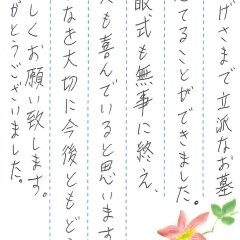 げさまで立派なお墓
てることができました。
眼式も無事に終え、
も喜んでいると思います
なを大切に今後ともど
しくお願い致します。
がとうございました。